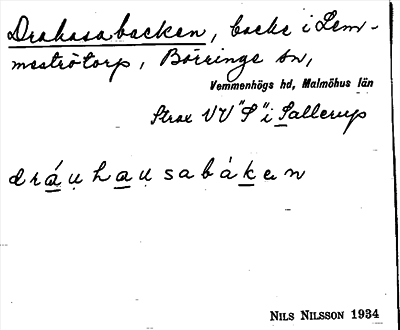 Drahasabacken, backe i Lem-
meströtorp, Börringe sn,
Vemmenhögs hd, Malmöhus län
Strax VV "S" i Sallerup
dráu̥hau̥sabákan
NILS NILSSON 1934